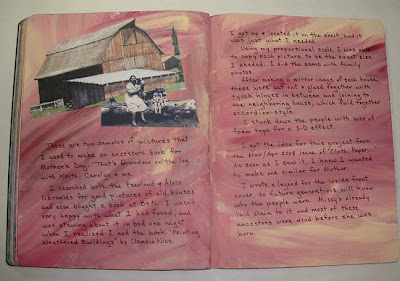 These are two samples of pictures that
I used to make an ancestors book for
Mother's Day. That's Grandma on the log
with Keith, Carolyn & me.
I searched both the Pearland & Alvin
libraries for good pictures of old houses
and even bought a book at B&N. I wasn't
very happy with what I had found, and
was stewing about it in bed one night
when I realized I had the book "Painting
Weathered Buildings" by Claudia Nice.
I got up & located it on the shelf, and it
was just what I needed.
Using my proportional scale, I was able
to copy each picture to be the exact size
I needed. I did the same with family
photos.
After making a mirror image of each house,
these were cut out & glued together with
eyelet hinges in between each joining to
the neighboring house, which fold together
accordian-style.
I stuck down the people with bits of
foam tape for a 3-D effect.
I got the idea for this project from
the Mar/Apr 2008 issue of "Cloth Paper...
As soon as I saw it, I knew I wanted
to make one similar for Mother.
I wrote a legend for the inside front
cover, so future generations will know
who the people were. Missy's already
laid claim to it and most of these
ancestors were dead before she was
born.